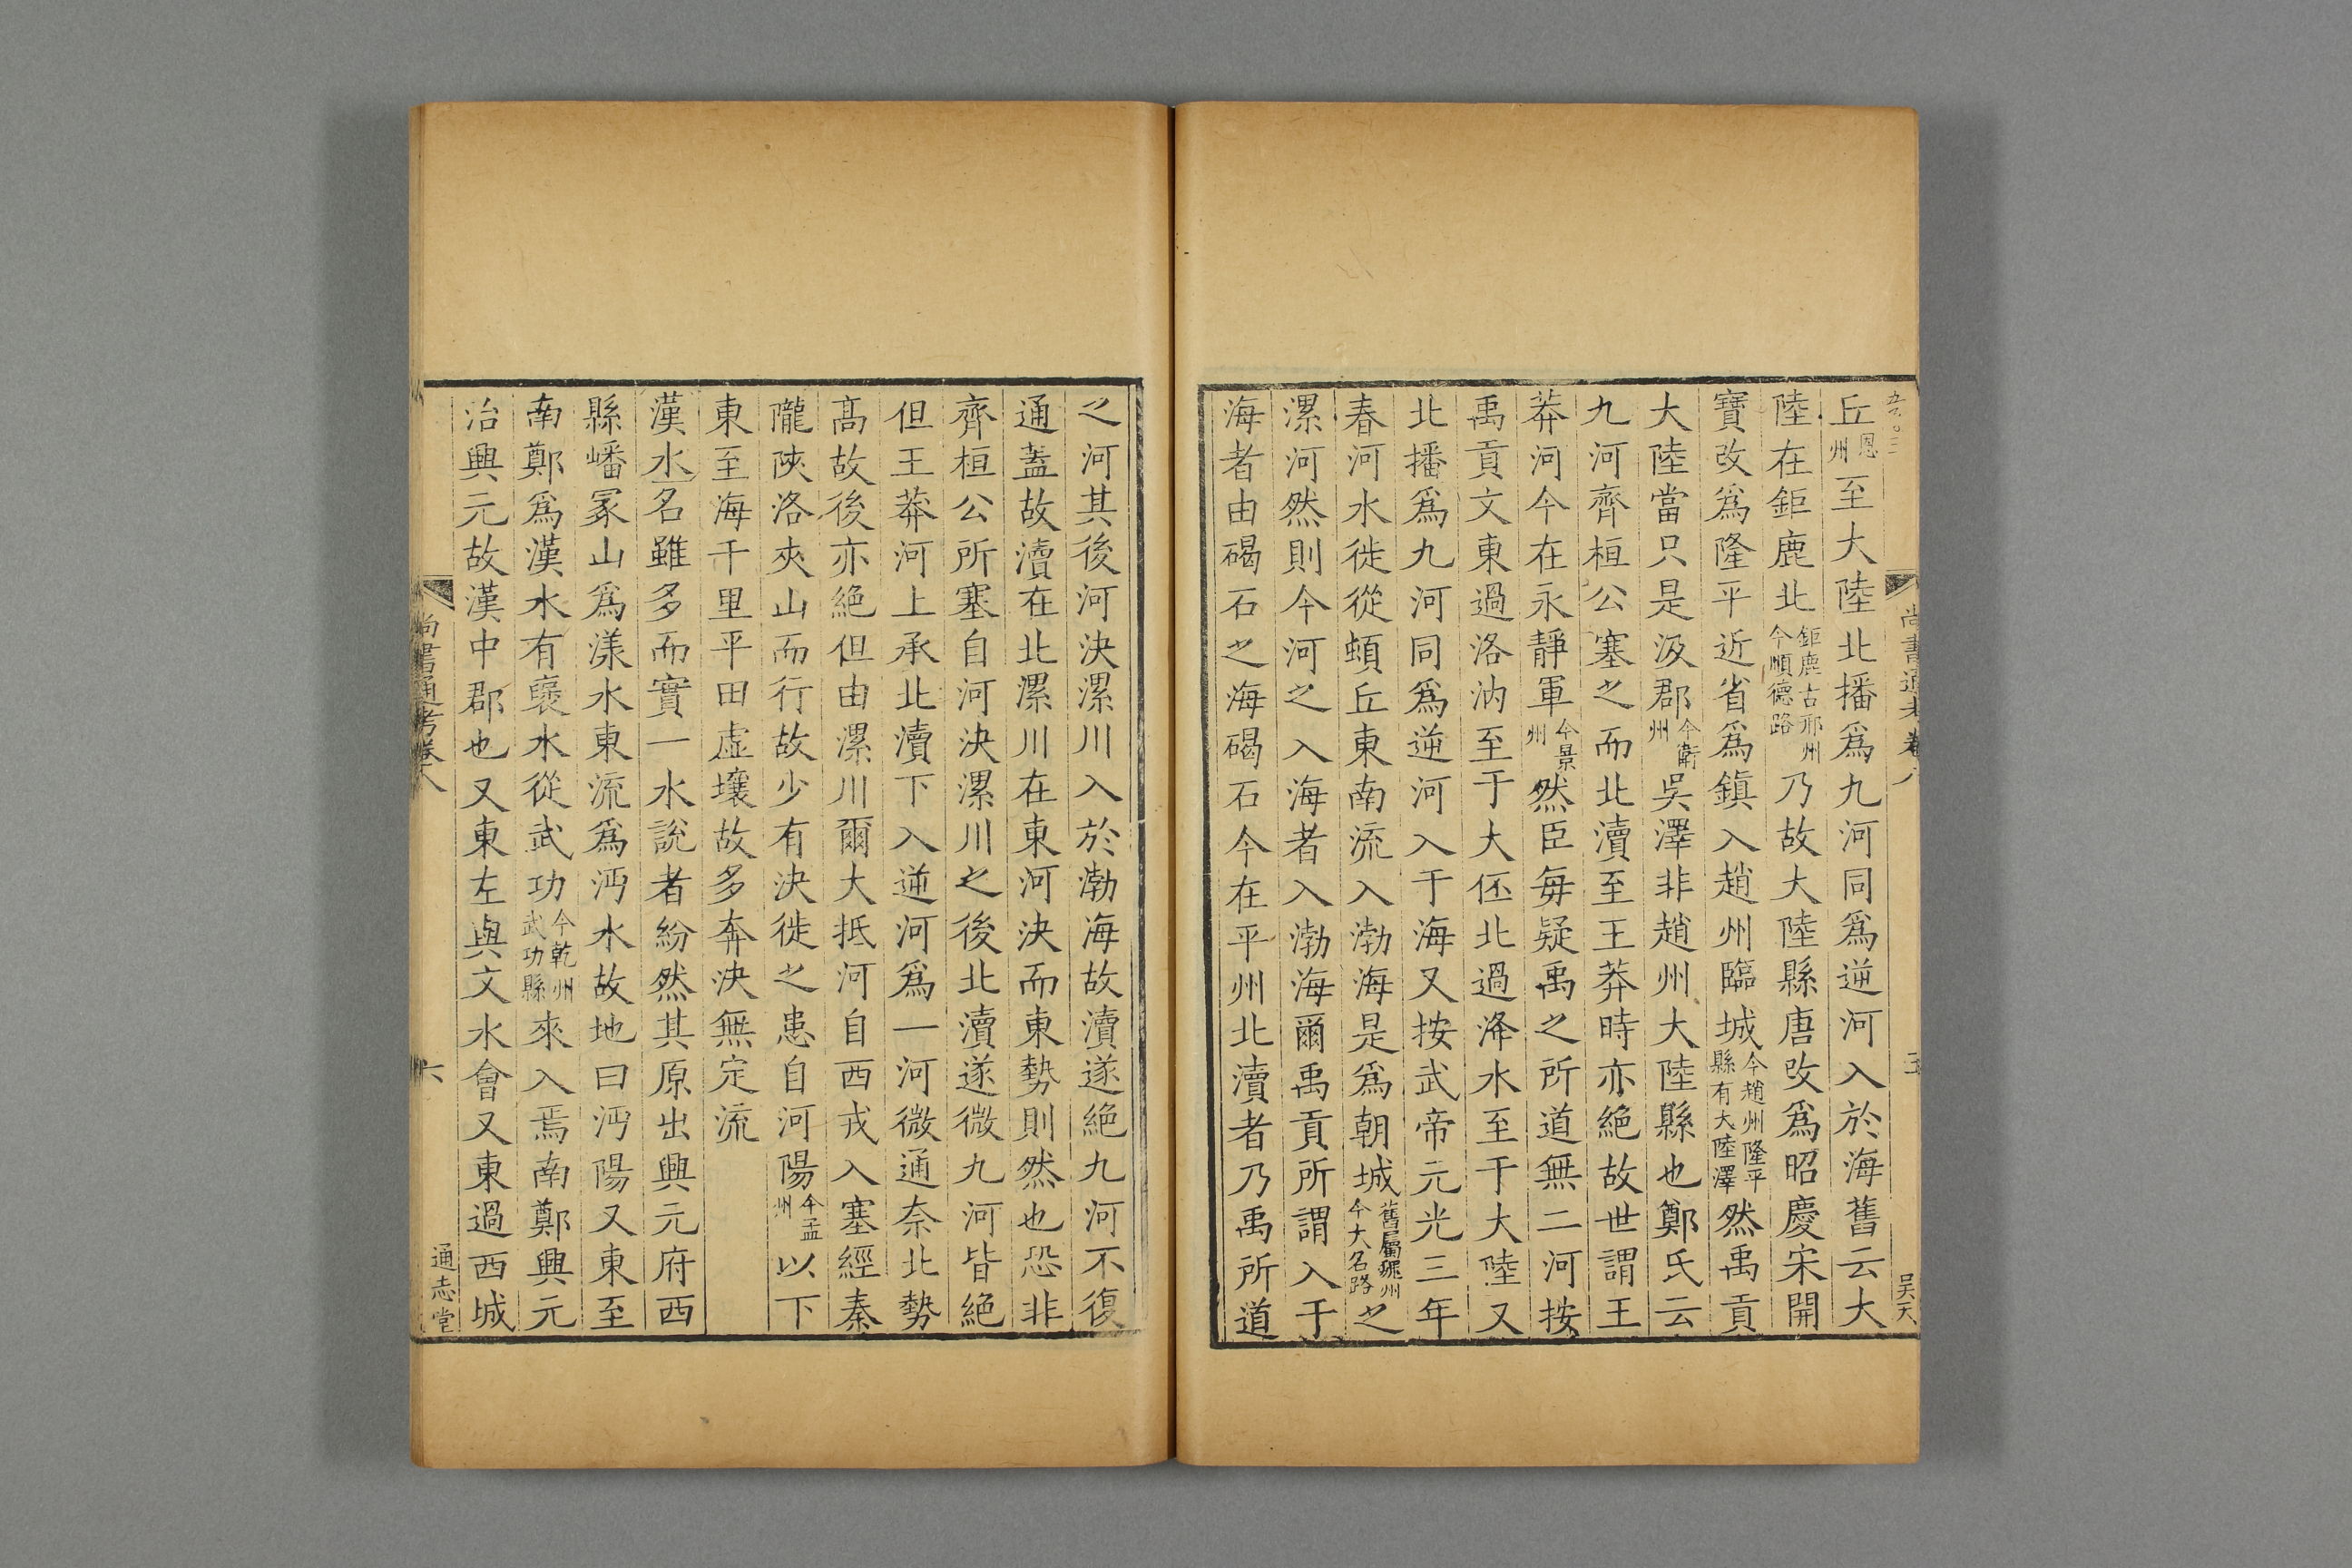 尚書通考卷八
五
吴天
丘恩州至大陸北播爲九河同爲逆河入於海舊云大
陸在鉅鹿北鉅鹿古邢州今順德路乃故大陸縣唐改爲昭慶宋開
寶改爲隆平近省爲鎮入趙州臨城今趙州隆平縣有大陸澤然禹貢
大陸當只是汲郡今衞州吳澤非趙州大陸縣也鄭氏云
九河齊桓公塞之而北瀆至王莽時亦絶故世謂王
莽河今在永靜軍今景州然臣每疑禹之所道無二河按
禹貢文東過洛汭至于大伾北過洚水至于大陸又
北播爲九河同爲逆河入于海又按武帝元光三年
春河水徙從頓丘東南流入渤海是爲朝城舊屬魏州今大名路之
漯河然則今河之入海者入渤海爾禹貢所謂入于
海者由碣石之海碣石今在平州北瀆者乃禹所道
之河其後河決漯川入於渤海故瀆遂絶九河不復
通蓋故瀆在北漯川在東河決而東勢則然也恐非
齊桓公所塞自河決漯川之後北瀆遂微九河皆絶
但王莽河上承北瀆下入逆河爲一河微通奈北勢
髙故後亦絶但由漯川爾大抵河自西戎入塞經秦
隴陜洛夾山而行故少有決徙之患自河陽今孟州以下
東至海千里平田虚壤故多奔決無定流
漢水名雖多而實一水說者紛然其原出興元府西
縣嶓冢山爲漾水東流爲沔水故地曰沔陽又東至
南鄭爲漢水有襃水從武功今乾州武功縣來入焉南鄭興元
治興元故漢中郡也又東左與文水會又東過西城
尚書通考卷八
六
通志堂